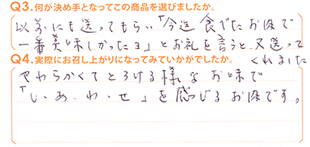 Q3.何が決め手となってこの商品を選びましたか。
以前にも送ってもらい「今迄食べたお肉で
一番美味しかったョ」とお礼を言うと、又送って
くれました
Q4.実際にお召し上がりになってみていかがでしたか。
やわらかくてとろける様なお味で
「し、あ、わ、せ」を感じるお肉です。